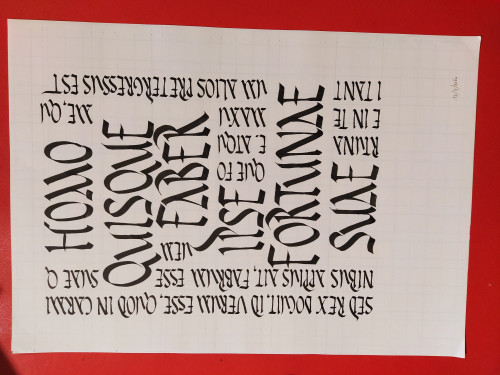 HOMO
QUISQUE
FABER
IPSE
FORTUNAE
SUAE
SED REX DOCUIT, ID VERUM ESSE, QUOD IN CARMI
NIBUS APPIUS AIT, FABRUM ESSE SUAE Q
UEM
QUE FO RTUNA
E, ATQU E IN TE
MAXU ME, QU I TANT
UM ALIOS PRETERGRESSUS EST